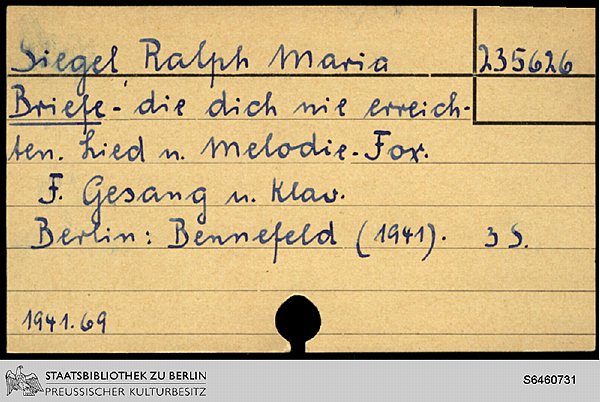 Siegel, Ralph Maria 235626
Briefe - die dich nie erreich-
ten. Lied u. Melodie-Fox.
F. Gesang u. Klav.
Berlin: Bennefeld (1941). 3 S.
1941.69
STAATSBIBLIOTHEK ZU BERLIN
PREUSSISCHER KULTURBESITZ
S6460731